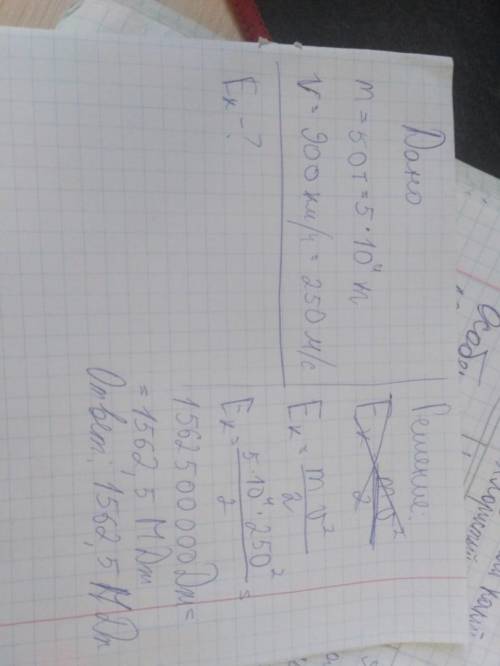 Дано
m = 50т = 5·10⁴ к
V = 900 км/ч = 250 м/с
Eк - ?
Решение:
Eк = mv²/2
Eк = 5·10⁴·250²/2 =
1562500000Дж =
= 1562,5 МДж
Ответ: 1562,5 МДж
Особ